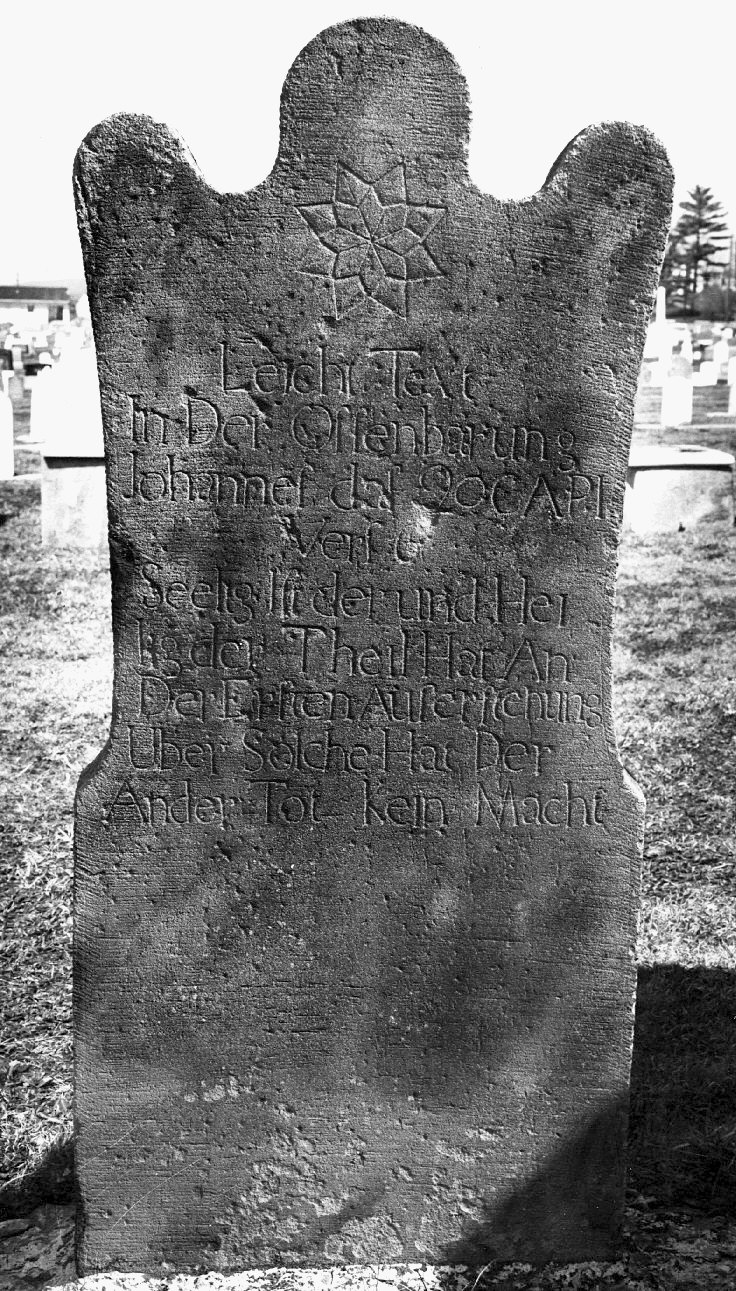 Leicht Text
In Der Offenbarung
Johanneſ daſ 20 CAPI
Verſ 6
Seelig Iſt der und Hei
lig der Theil Hat An
Der Erſten Aufferſtehung
Uber Solche Hat Der
Ander Tot kein Macht